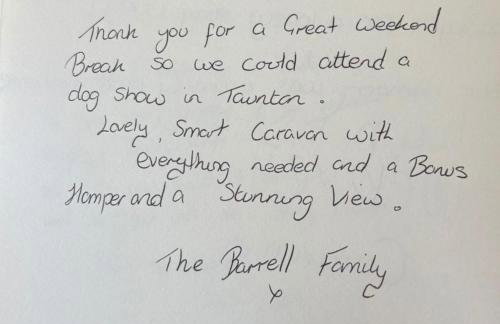 Thank you for a Great Weekend
Break so we could attend a
dog show in Taunton.
Lovely, Smart Caravan with
everything needed and a Bonus
Hamper and a Stunning View.
The Barrell Family
x